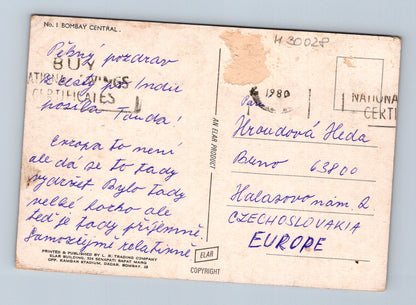 No. 1 BOMBAY CENTRAL.
H 3002P
BUY
NATIONAL SAVINGS
CERTIFICATES
Pěkný pozdrav
z cesty po Indii
posílá Fanda!
Evropa to není
ale dá se to tady
vydržet Bylo tady
velké horko ale
teď je tady příjemně.
Samozřejmě relativně.
PRINTED & PUBLISHED BY L. R. TRADING COMPANY
ELAR BUILDING, 236 SENAPATI BAPAT MARG
OPP. RAMDAR STADIUM, DADAR, BOMBAY. 28
AN ELAR PRODUCT
ELAR
COPYRIGHT
1980
NATIONA
CERTI
Hroudová Heda
Brno 63800
Halasovo nám 2
CZECHOSLOVAKIA
EUROPE